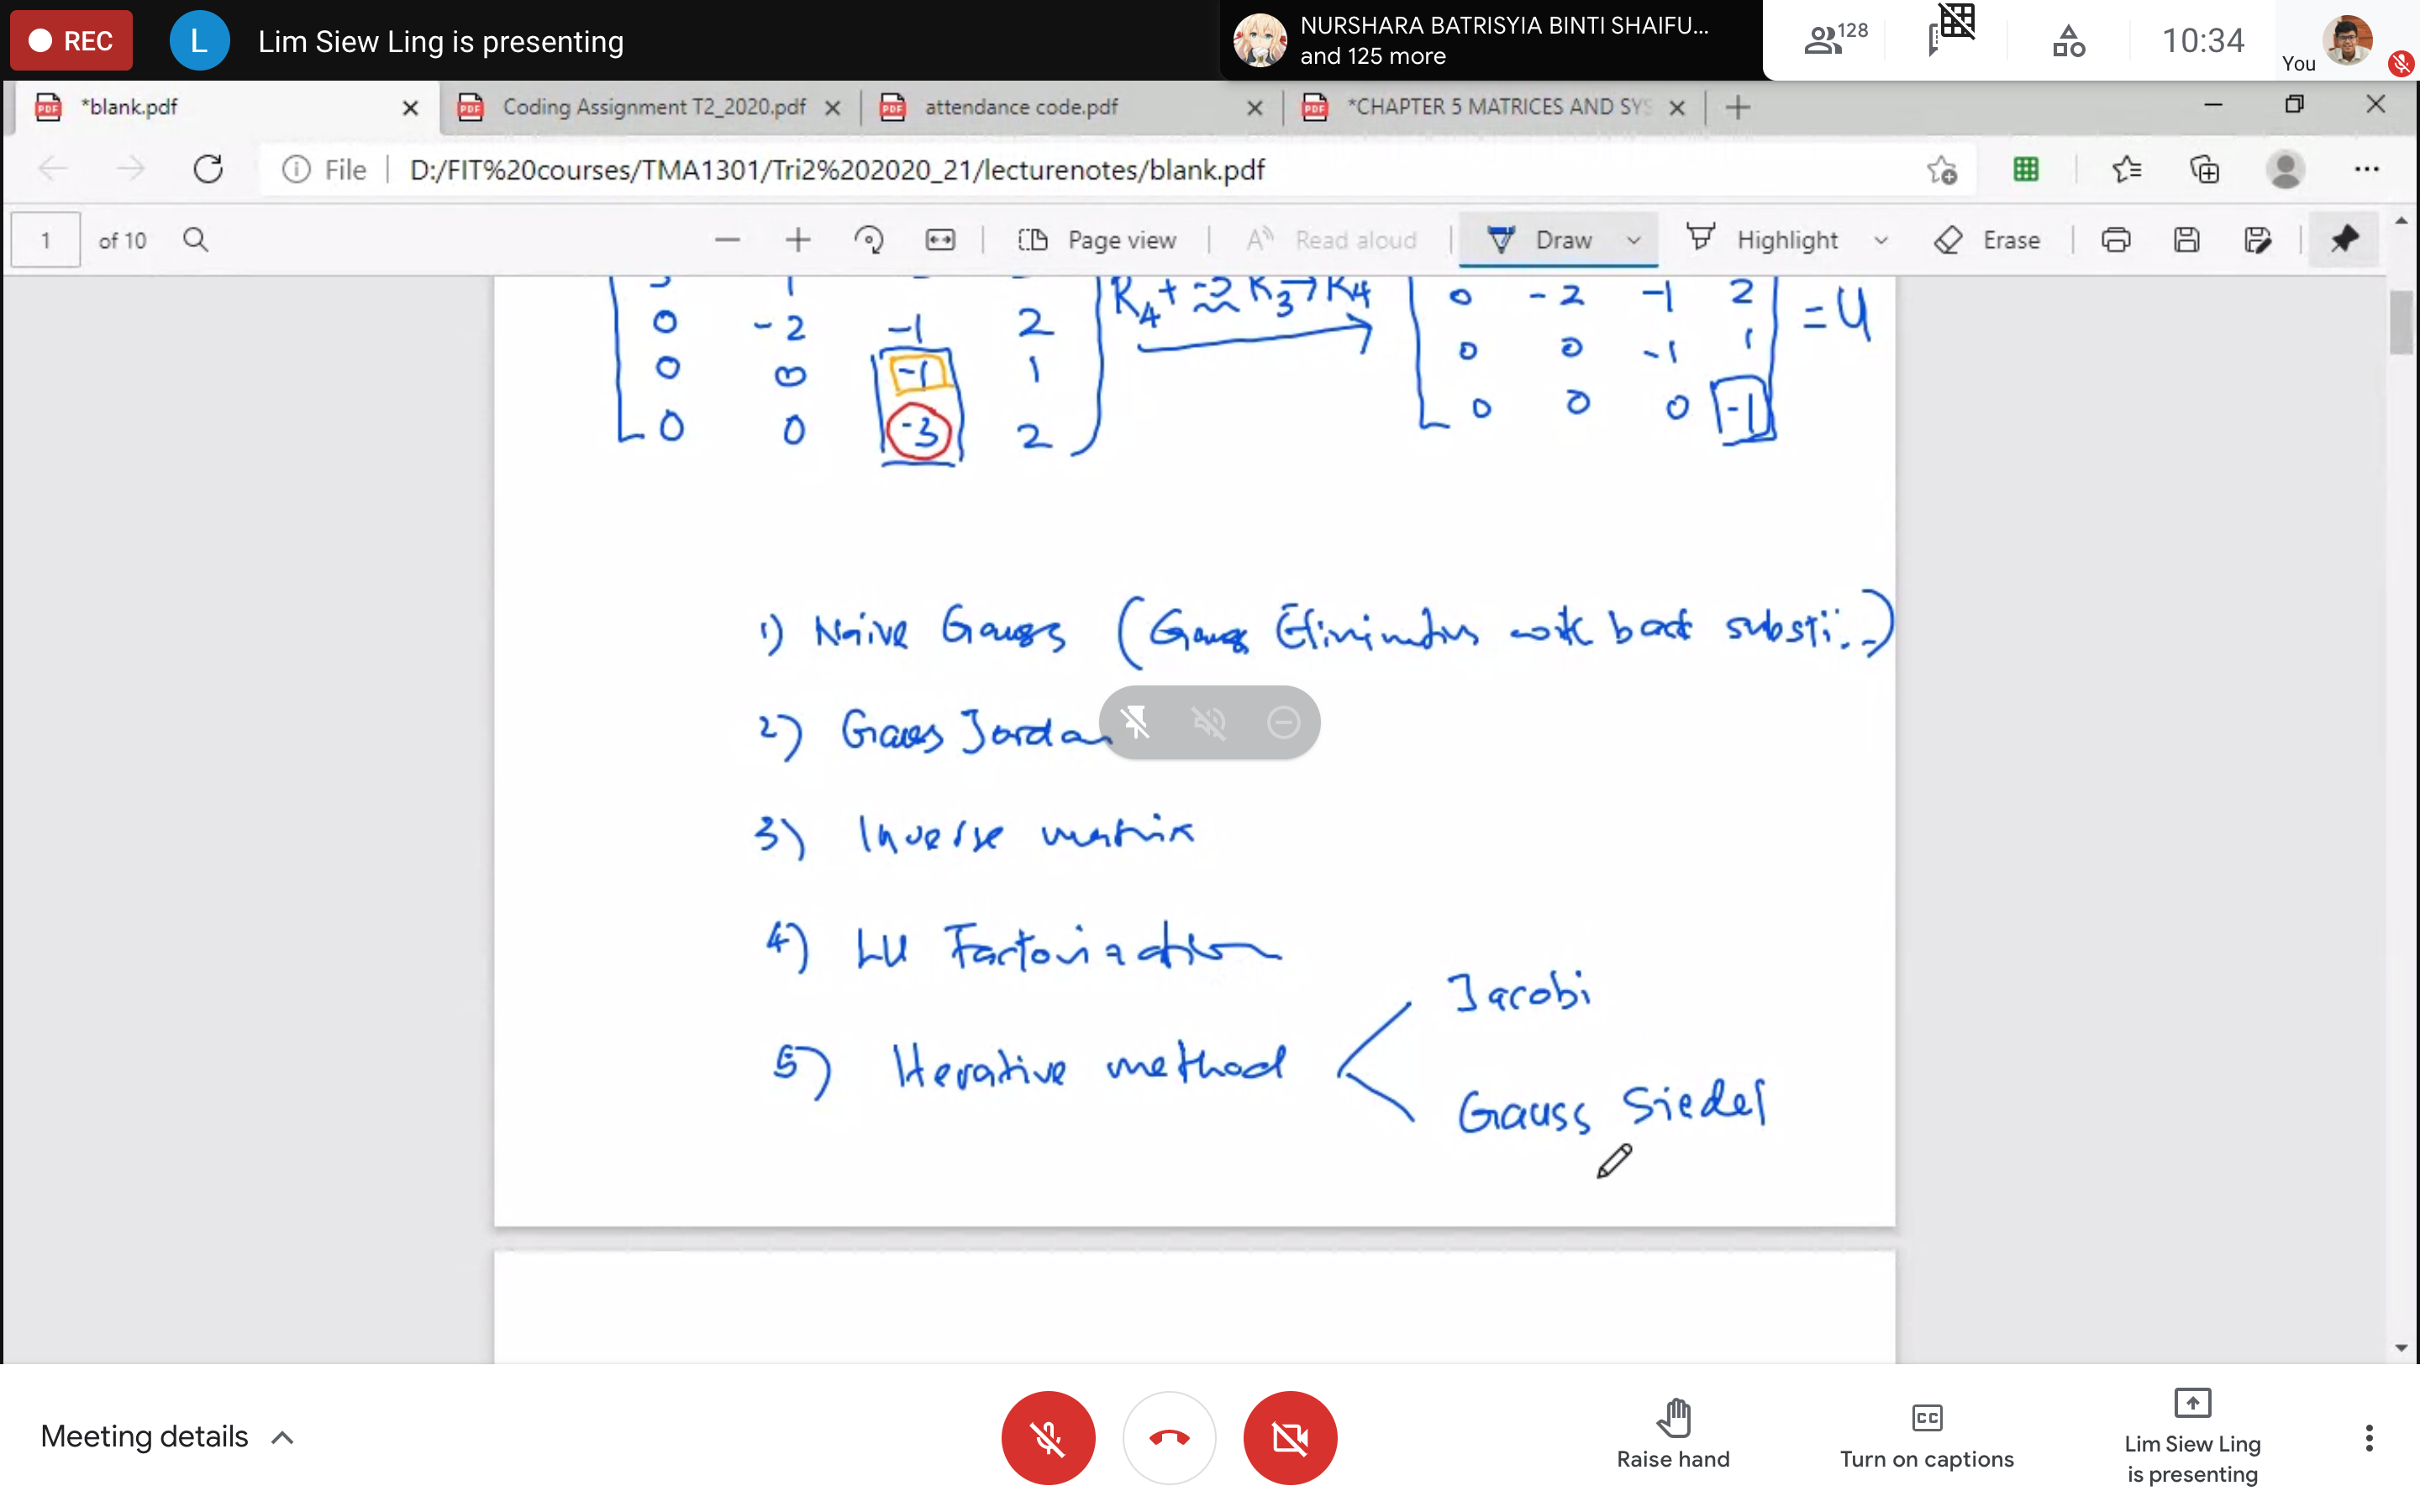 REC
L
Lim Siew Ling is presenting
NURSHARA BATRISYIA BINTI SHAIFU...
and 125 more
128
10:34
You
*blank.pdf
Coding Assignment T2_2020.pdf
attendance code.pdf
*CHAPTER 5 MATRICES AND SYS
File
D:/FIT%20courses/TMA1301/Tri2%202020_21/lecturenotes/blank.pdf
1 of 10
Page view
Read aloud
Draw
Highlight
Erase
R4 + -2 R3 → R4
0 -2 -1 2
0 0 -1 1
0 0 -3 2
0 -2 -1 2
0 0 -1 1
0 0 0 -1
= U
1) Naive Gauss (Gauss Elimination with back substi...)
2) Gauss Jordan
3) Inverse matrix
4) LU Factorization
5) Iterative method
Jacobi
Gauss Siedel
Meeting details
Raise hand
CC
Turn on captions
Lim Siew Ling
is presenting